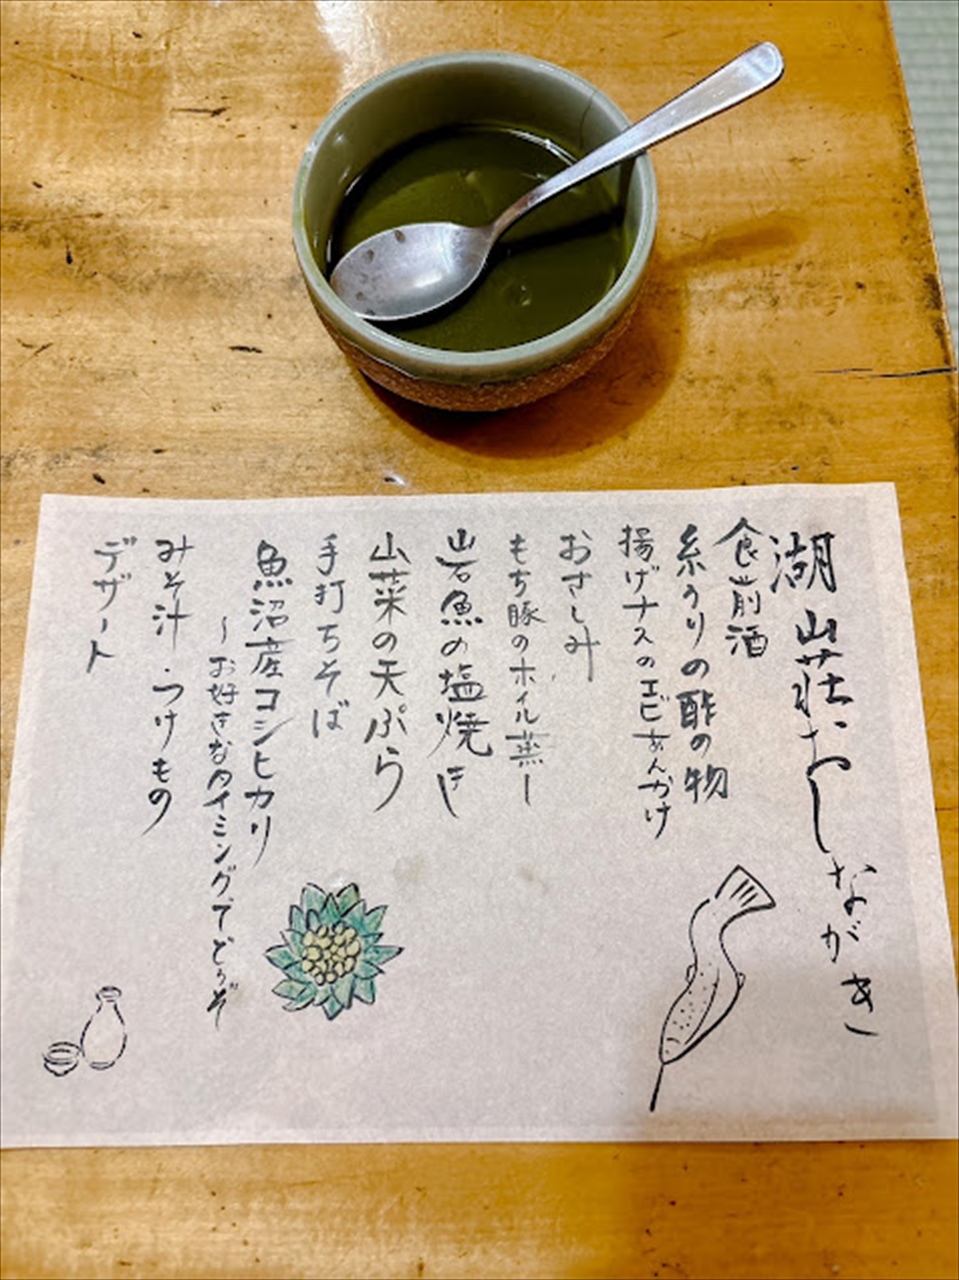 湖山荘おしながき
食前酒
糸うりの酢の物
揚げナスのエビあんかけ
おさしみ
もち豚のホイル蒸し
岩魚の塩焼き
山菜の天ぷら
手打ちそば
魚沼産コシヒカリ
～お好きなタイミングでどうぞ
みそ汁・つけもの
デザート